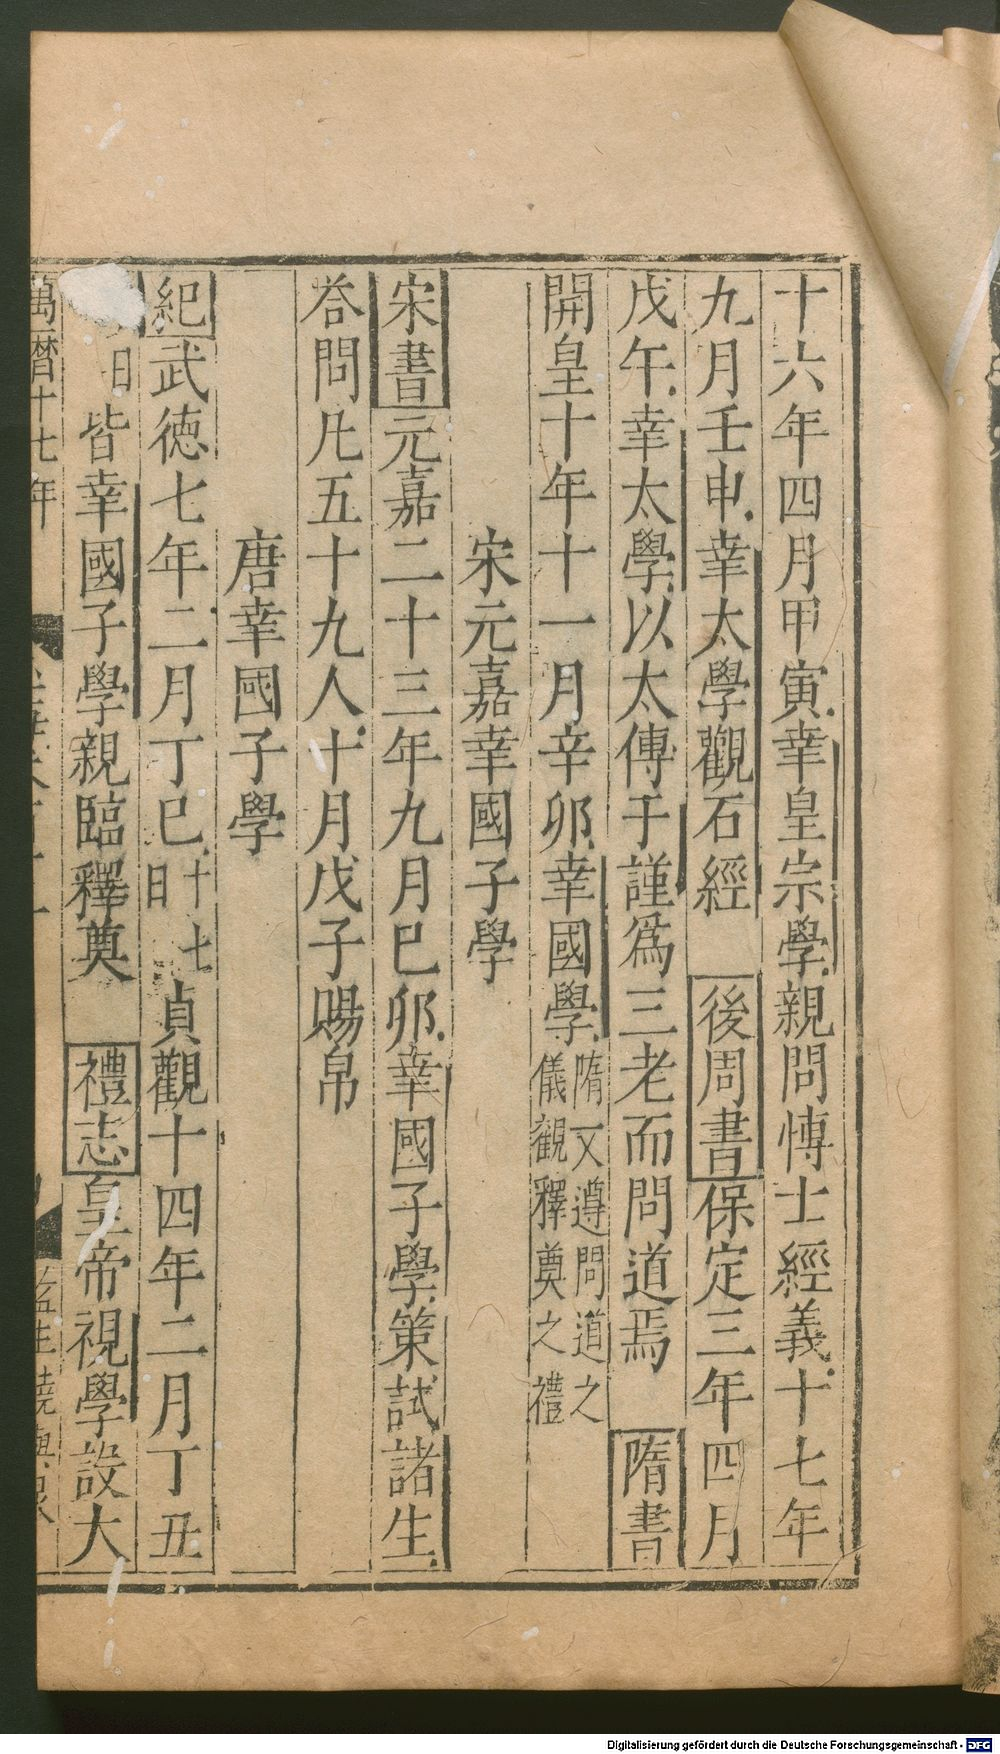 十六年四月甲寅幸皇宗學親問博士經義十七年
九月壬申幸太學觀石經 後周書保定三年四月
戊午幸太學以太傅于謹爲三老而問道焉 隋書
開皇十年十一月辛卯幸國學隋文遵問道之儀觀釋奠之禮
宋元嘉幸國子學
宋書元嘉二十三年九月巳卯幸國子學策試諸生
荅問凡五十九人十月戊子賜帛
唐幸國子學
紀武德七年二月丁巳十七日貞觀十四年二月丁丑
日皆幸國子學親臨釋奠 禮志皇帝視學設大
萬曆十七年 監生
Digitalisierung gefördert durch die Deutsche Forschungsgemeinschaft - DFG